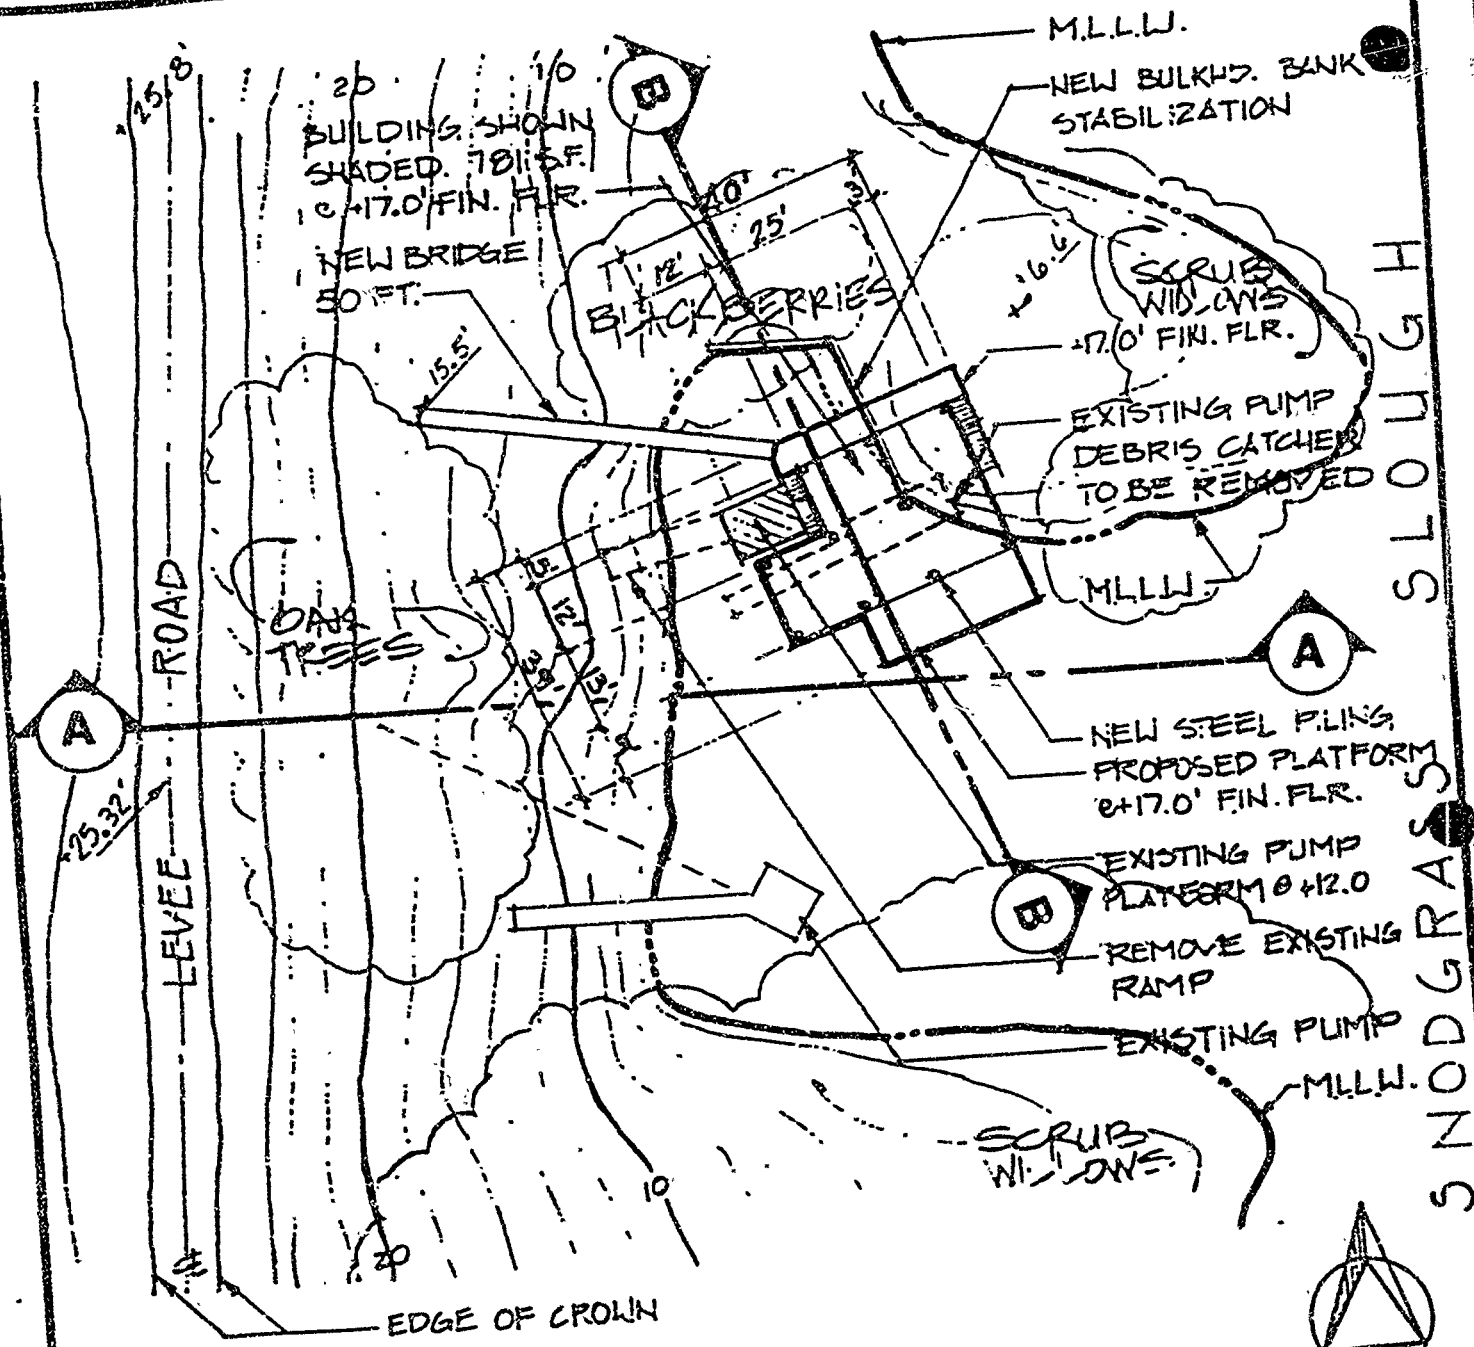 M.L.L.W.
NEW BULKHD. BANK
STABILIZATION
25.8
20
10
B
BUILDING SHOWN
SHADED. 781 S.F.
@ +17.0' FIN. FLR.
40'
25'
3
12'
NEW BRIDGE
50 FT.
BLACKBERRIES
+16.6
SCRUB
WILLOWS
+17.0' FIN. FLR.
15.5'
EXISTING PUMP
DEBRIS CATCHER
TO BE REMOVED
M.L.L.W.
SNODGRASS SLOUGH
OAK
TREES
12'
13'
A
A
LEVEE ROAD
+25.32'
NEW STEEL PILING
PROPOSED PLATFORM
@+17.0' FIN. FLR.
EXISTING PUMP
PLATFORM @ +12.0
B
REMOVE EXISTING
RAMP
EXISTING PUMP
M.L.L.W.
SCRUB
WILLOWS
10
20
EDGE OF CROWN